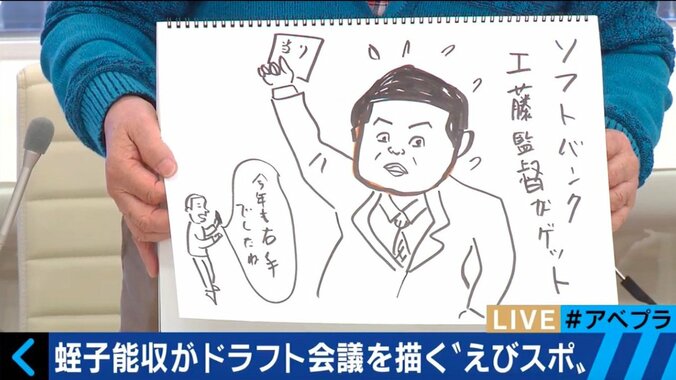 当り
ソフトバンク
工藤監督がゲット
今年も右手
でしたね
LIVE #アベプラ
蛭子能収がドラフト会議を描く〝えびスポ〟